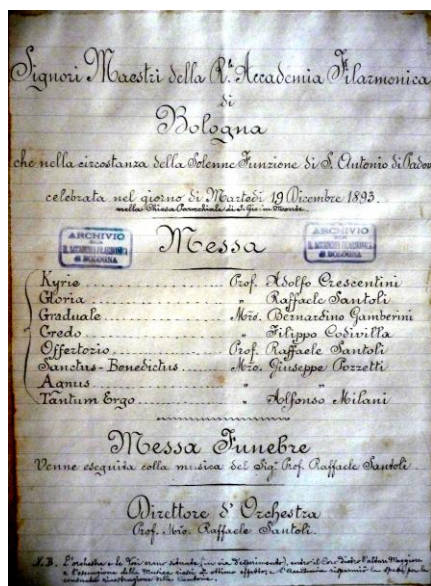 Signori Maestri della R. Accademia Filarmonica
di
Bologna
che nella circostanza della Solenne Funzione di S. Antonio di Padov
celebrata nel giorno di Martedì 19 Dicembre 1893.
nella Chiesa Parrocchiale di S. Gio: in Monte.
Messa
ARCHIVIO
R. ACCADEMIA FILARMONICA
di BOLOGNA
ARCHIVIO
R. ACCADEMIA FILARMONICA
di BOLOGNA
Kyrie .......... Prof. Adolfo Crescentini
Gloria .......... " Raffaele Santoli
Graduale .......... Mro. Bernardino Gamberini
Credo .......... " Filippo Codivilla
Offertorio .......... Prof. Raffaele Santoli
Sanctus - Benedictus .......... Mro. Giuseppe Pozzetti
Agnus .......... " "
Tantum Ergo .......... " Alfonso Milani
Messa Funebre
Venne eseguita colla musica del Sig. Prof. Raffaele Santoli.
Direttore d'Orchestra
Prof. Mro. Raffaele Santoli.
N.B. L'orchestra e le Voci erano situate (in via d'esperimento), entro il Coro dietro l'Altare Maggiore
e l'esecuzione della Musica